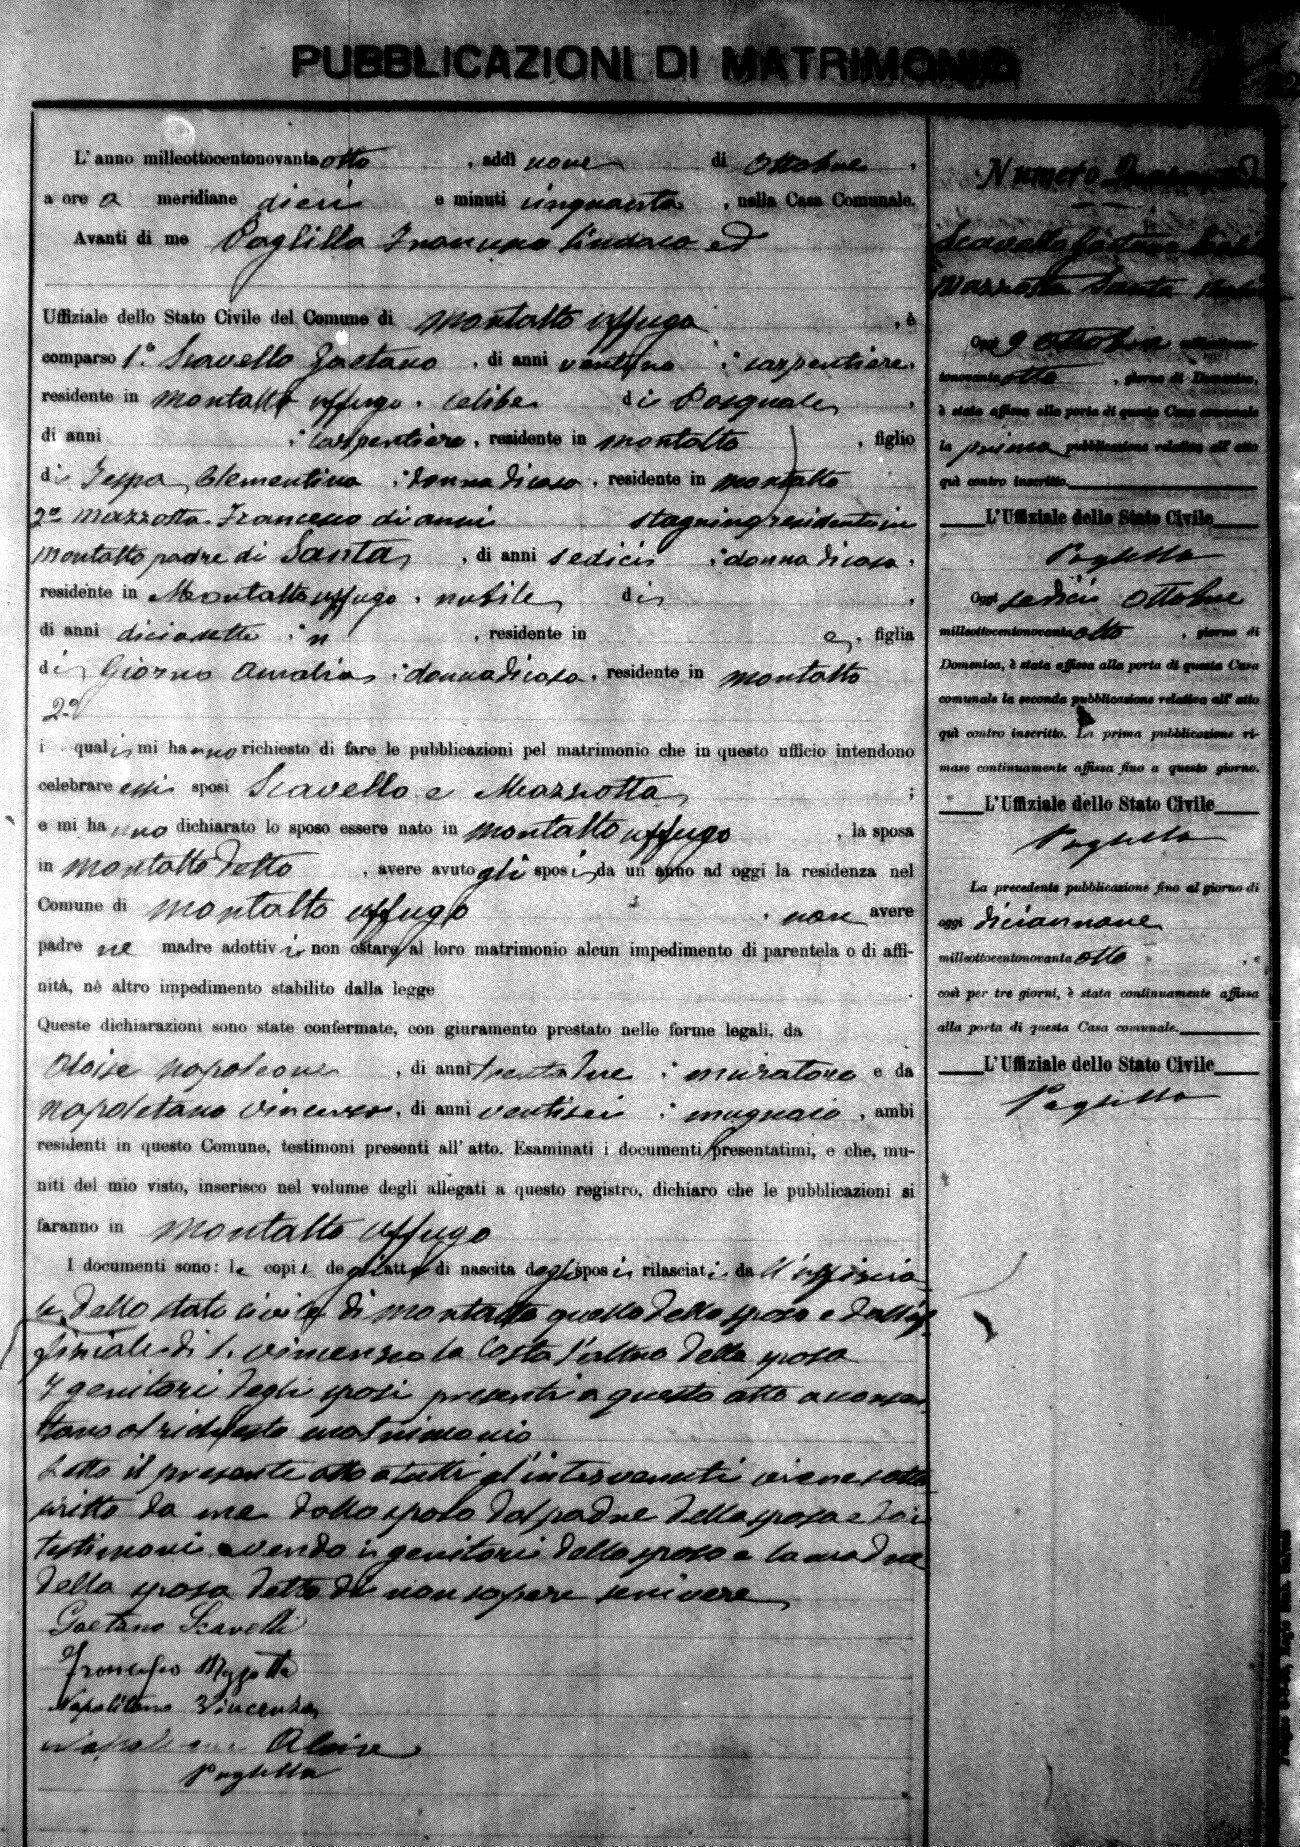 PUBBLICAZIONI DI MATRIMONIO
L'anno milleottocentonovantaotto, addì nove di Ottobre,
a ore a meridiane dieci e minuti cinquanta, nella Casa Comunale.
Avanti di me Paglilla Francesco Sindaco ed
Uffiziale dello Stato Civile del Comune di Montalto Uffugo, è
comparso 1° Scavello Gaetano, di anni ventuno, carpentiere,
residente in Montalto Uffugo, celibe di Pasquale,
di anni, carpentiere, residente in Montalto, figlio
di Clementina, donna di casa, residente in Montalto
2° Mazzotta Francesco di anni stagnino residente in
Montalto padre di Santa, di anni sedici, donna di casa,
residente in Montalto Uffugo, nubile di
di anni diciasette, residente in, figlia
di Giorno Amalia, donna di casa, residente in Montalto
2°
i quali mi hanno richiesto di fare le pubblicazioni pel matrimonio che in questo ufficio intendono
celebrare essi sposi Scavello e Mazzotta;
e mi hanno dichiarato lo sposo essere nato in Montalto Uffugo, la sposa
in Montalto detto, avere avuto gli sposi da un anno ad oggi la residenza nel
Comune di Montalto Uffugo, non avere
padre ne madre adottivi non ostare al loro matrimonio alcun impedimento di parentela o di affi-
nità, nè altro impedimento stabilito dalla legge.
Queste dichiarazioni sono state confermate, con giuramento prestato nelle forme legali, da
Aloise Napoleone, di anni trentadue, muratore e da
Napoletano Vincenzo, di anni ventisei, mugnaio, ambi
residenti in questo Comune, testimoni presenti all'atto. Esaminati i documenti presentatimi, e che, mu-
niti del mio visto, inserisco nel volume degli allegati a questo registro, dichiaro che le pubblicazioni si
faranno in Montalto Uffugo
I documenti sono: le copie degli atti di nascita degli sposi rilasciati da l'uffizia
le dello stato civile di Montalto quella dello sposo e dall'uf
fiziale di S. Vincenzo la Costa l'altra della sposa
I genitori degli sposi presenti a questo atto acconsen
tono al richiesto matrimonio
Letto il presente atto a tutti gl'intervenuti viene sotto
scritto da me dallo sposo dal padre della sposa e dai
testimoni avendo i genitori dello sposo e la madre
della sposa detto di non sapere scrivere
Gaetano Scavelli
Francesco Mazzotta
Napolitano Vincenzo
Napoleone Aloise
Paglilla
Numero
Scavello Gaetano
Mazzotta Santa
Oggi 9 Ottobre milleottocen-
tonovantaotto, giorno di Domenica,
è stata affissa alla porta di questa Casa comunale
la prima pubblicazione relativa all'atto
quì contro inscritto.
L'Uffiziale dello Stato Civile
Paglilla
Oggi sedici Ottobre
milleottocentonovantaotto, giorno di
Domenica, è stata affissa alla porta di questa Casa
comunale la seconda pubblicazione relativa all'atto
quì contro inscritto. La prima pubblicazione ri-
mase continuamente affissa fino a questo giorno.
L'Uffiziale dello Stato Civile
Paglilla
La precedente pubblicazione fino al giorno di
oggi diciannove
milleottocentonovantaotto, e
così per tre giorni, è stata continuamente affissa
alla porta di questa Casa comunale.
L'Uffiziale dello Stato Civile
Paglilla